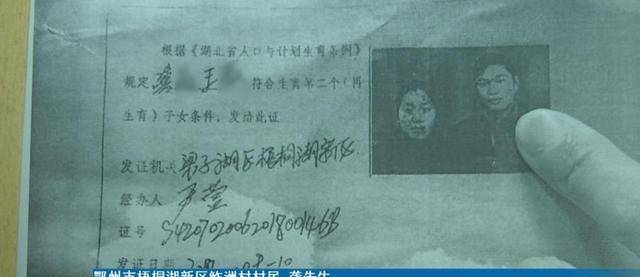 根据《湖北省人口与计划生育条例》
规定 龚 王 符合生育第二个（再
生育）子女条件，发给此证
发证机关 梁子湖区梧桐湖新区
经办人 尹莹
证号 S420702006201800146B
发证日期 08-10
鄂州市梧桐湖新区鲊洲村村民 龚先生